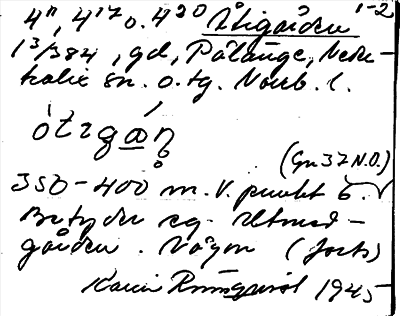 4", 4¹⁷ o. 4²⁰ Åtigården 1-2
1³/384, gd, Pålänge, Neder-
kalix sn. o. tg. Norrb. l.
ó̀tɩgá̱ṇ
(Gn 37 N.O.)
350-400 m. V. punkt 6.
Betyder eg. Utmed-
gården. Någon (forts)
Karin Rönnqvist 1945